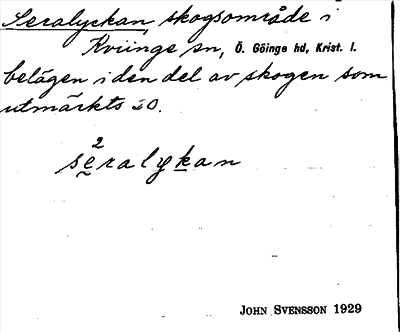 Seralyckan, skogsområde i
Kviinge sn, Ö. Göinge hd, Krist. l.
belägen i den del av skogen som
utmärkts 20.
2
seralykan
JOHN SVENSSON 1929